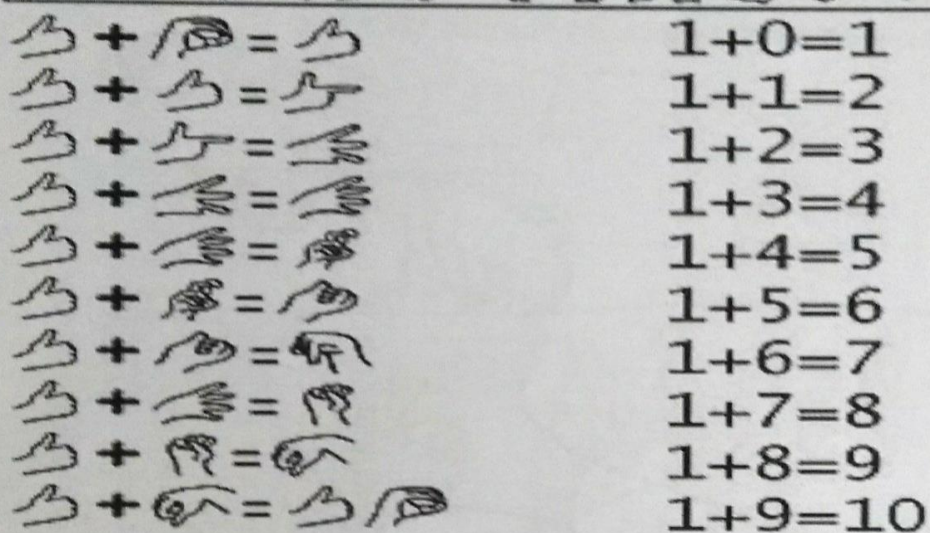 1+0=1
1+1=2
1+2=3
1+3=4
1+4=5
1+5=6
1+6=7
1+7=8
1+8=9
1+9=10